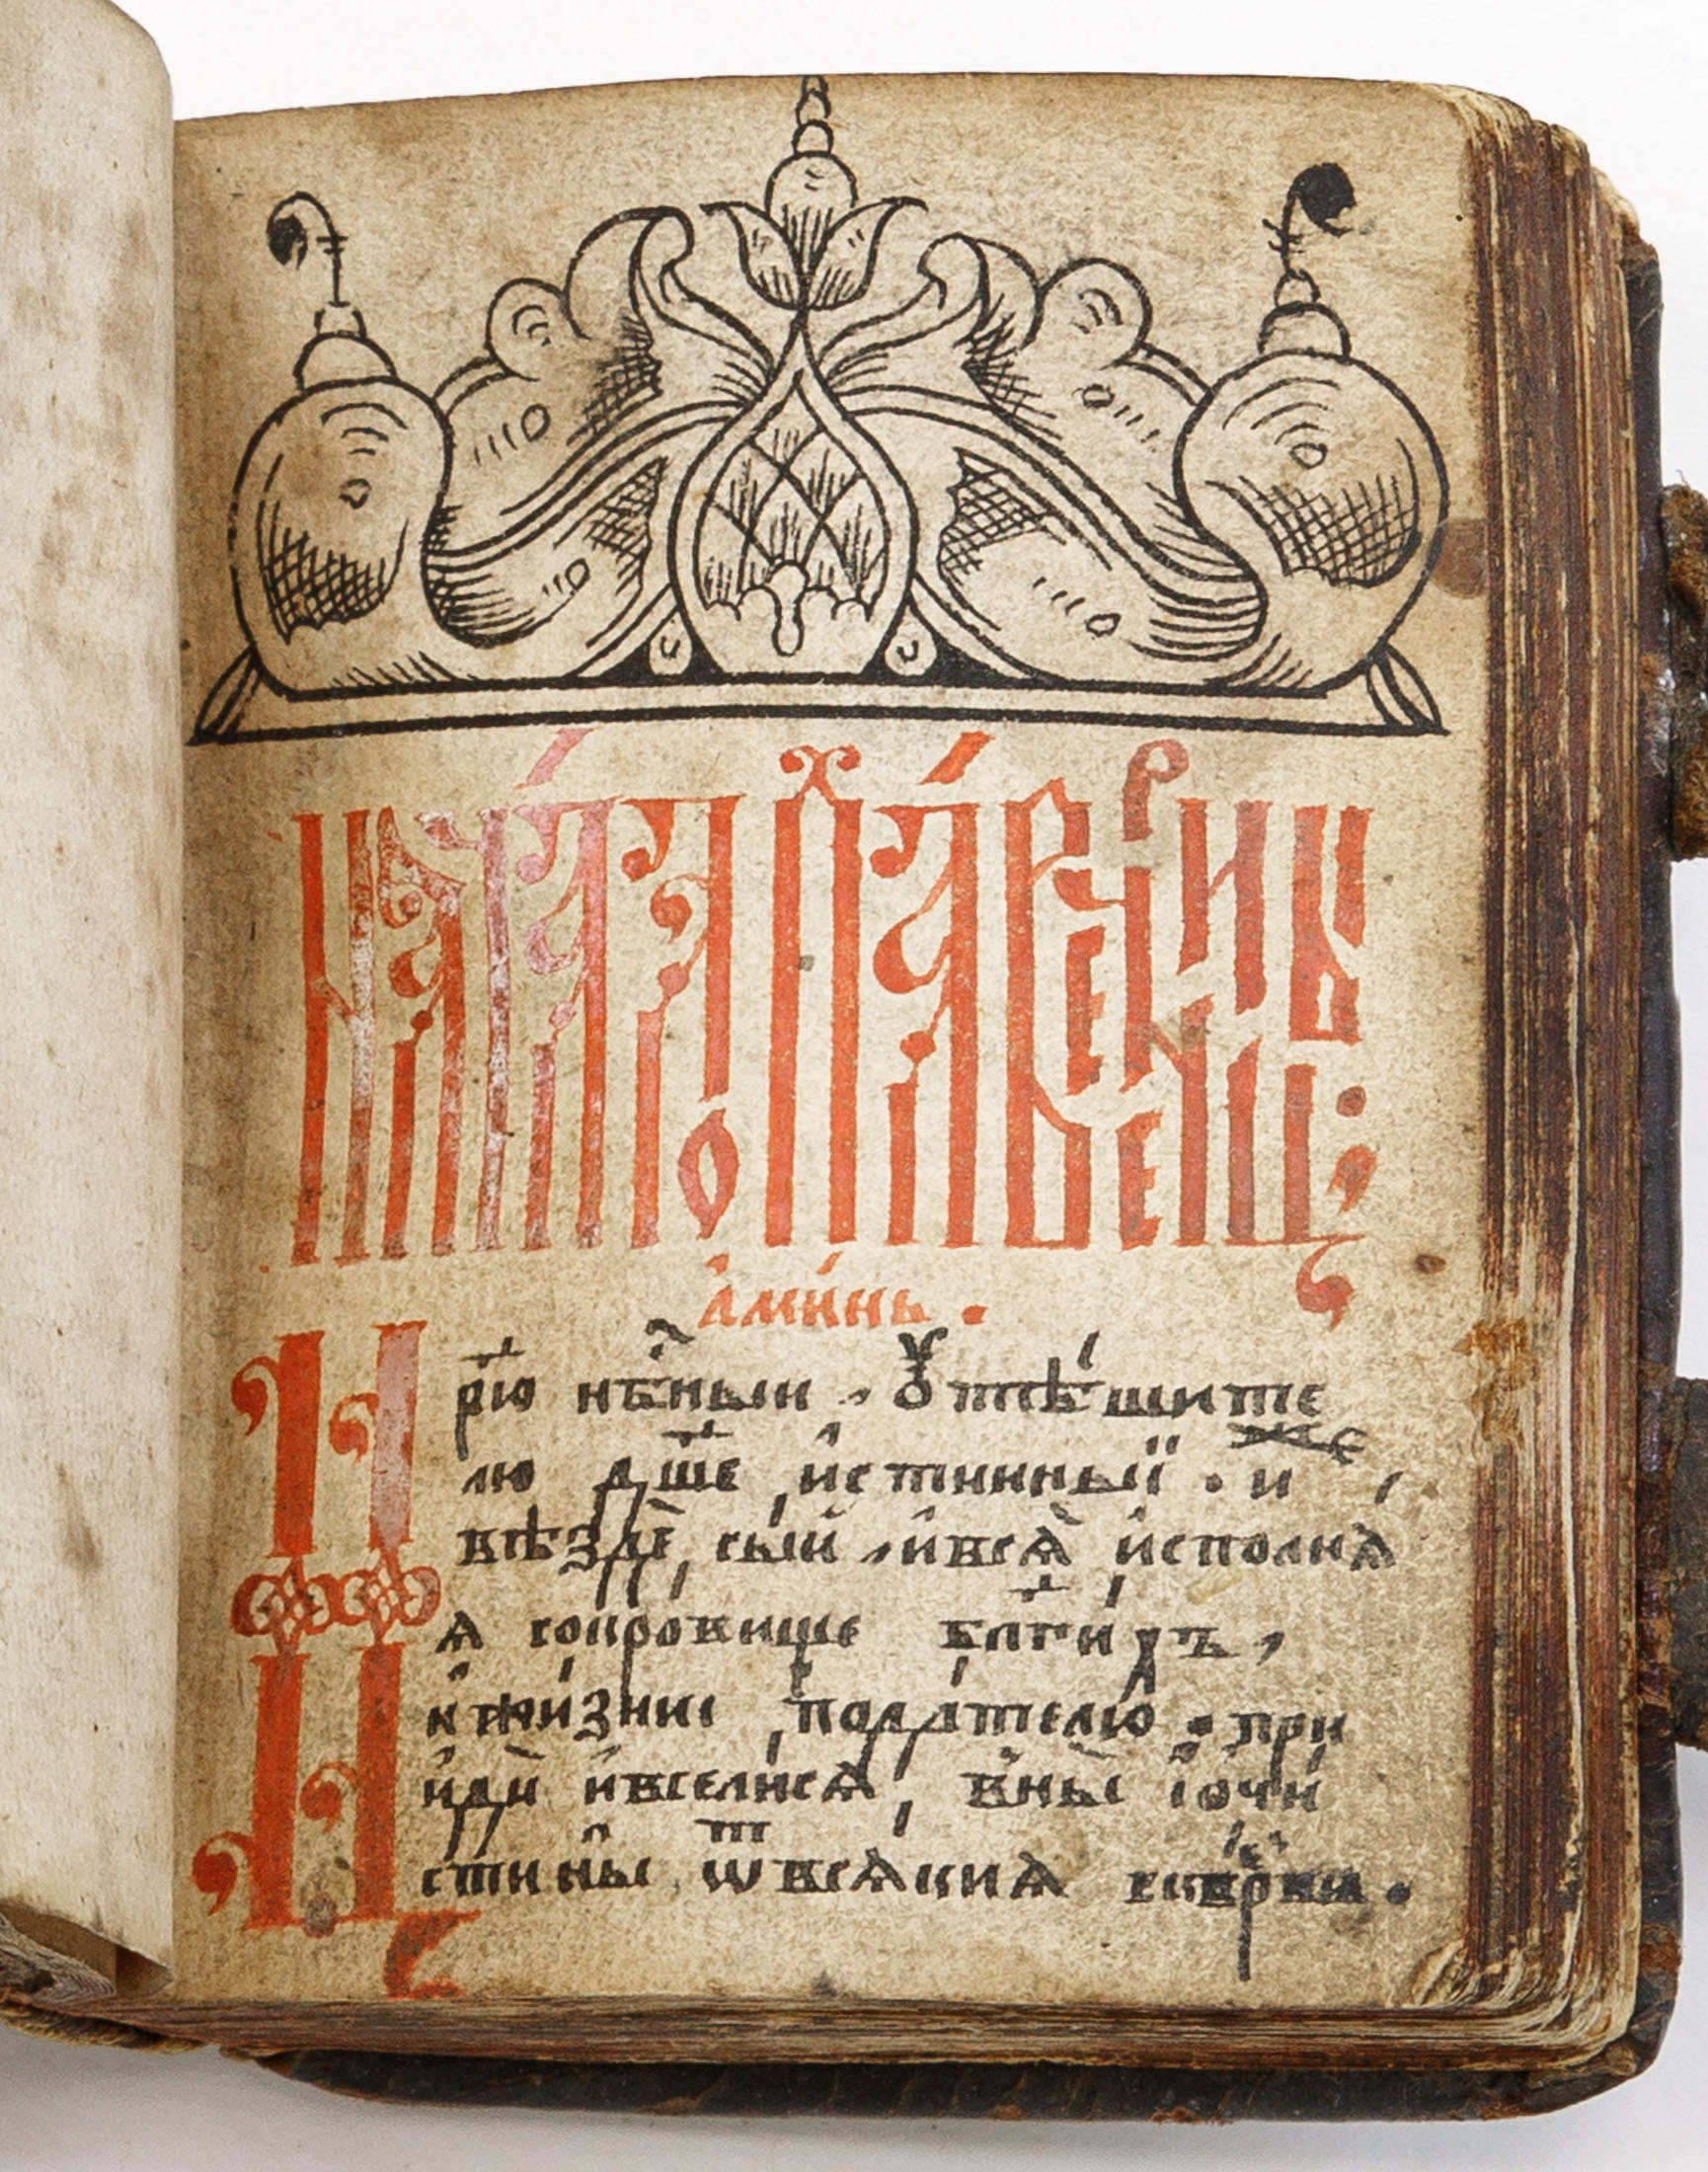 Нача́ло пра́вєчныѧ
а҆ми́нь .
Цр҃ю нб҃ныи , ᲂу҆тѣ́шите
лю дш҃е и҆стинныӥ . и́же ,
вѣздѐ сы́й , и҆всѧ̀ и҆сполнѧ
ѧ сокро́вище бл҃ги́хъ ,
и҆жи́зни пода́телю . при
идѝ и҆всели́сѧ , вны̀ і҆ѡчи
сти ны̀ ѿ всѧкиѧ скве́рны .